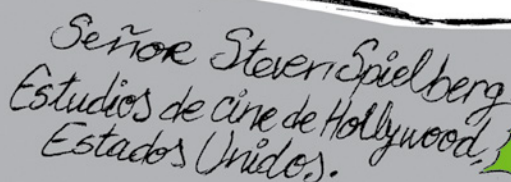 Señor Steven Spielberg
Estudios de cine de Hollywood,
Estados Unidos.